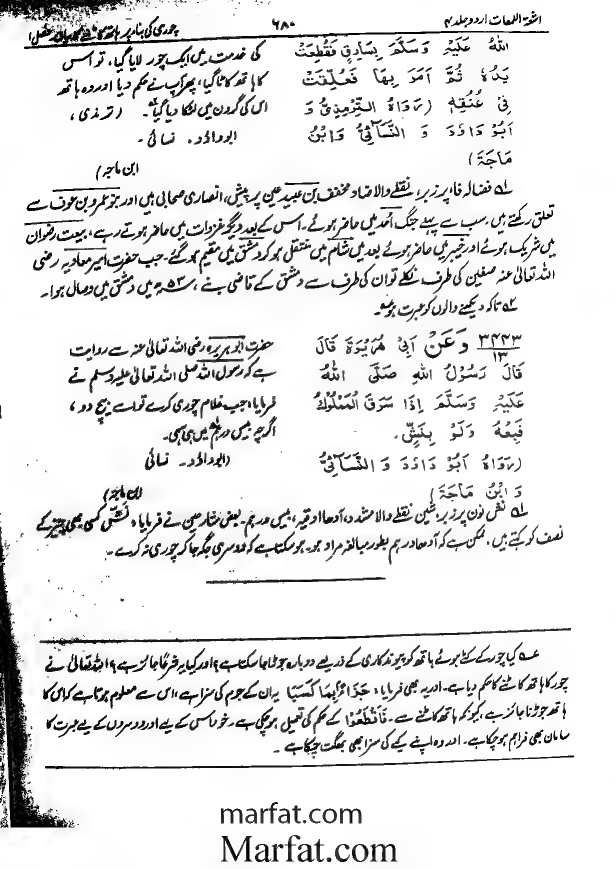 اشعۃ اللمعات اردو جلد ۴
۶۸۰
چوری کی بناء پر ہاتھ کاٹنے
اللهُ عَلَيْهِ وَسَلَّمَ بِسَارِقٍ فَقُطِعَتْ
يَدُهُ ثُمَّ أَمَرَ بِهَا فَعُلِّقَتْ
فِي عُنُقِهِ (رَوَاهُ التِّرْمِذِيُّ وَ
أَبُو دَاؤدَ وَ النَّسَآئِيُّ وَابْنُ
مَاجَةَ)
کی خدمت میں ایک چور لایا گیا، تو اُس
کا ہاتھ کاٹا گیا، پھر آپ نے حکم دیا اور وہ ہاتھ
اس کی گردن میں لٹکا دیا گیا۔ (ترمذی،
ابوداؤد۔ نسائی۔
ابن ماجہ)
لہ فضالہ فاء پر زبر، نقطے والا ضاد مخفف بن عبید عین پر پیش، انصاری صحابی ہیں اور بنو عمرو بن عوف سے
تعلق رکھتے ہیں، سب سے پہلے جنگ اُحد میں حاضر ہوئے۔ اس کے بعد دیگر غزوات میں حاضر ہوتے رہے، بیعت رضوان
میں شریک ہوئے اور خیبر میں حاضر ہوئے بعد میں شام میں منتقل ہو کر دمشق میں مقیم ہو گئے۔ جب حضرت امیر معاویہ رضی
اللہ تعالیٰ عنہ صفین کی طرف نکلے تو ان کی طرف سے دمشق کے قاضی بنے، ۵۳ھ میں دمشق میں وصال ہوا۔
۲ہ تاکہ دیکھنے والوں کو عبرت ہو۔
۳۴۴۳
۱۳
وَعَنْ أَبِي هُرَيْرَةَ قَالَ
قَالَ رَسُوْلُ اللهِ صَلَّى اللهُ
عَلَيْهِ وَسَلَّمَ إِذَا سَرَقَ الْمَمْلُوْكُ
فَبِعْهُ وَلَوْ بِنَشٍّ
(رَوَاهُ أَبُو دَاؤدَ وَ النَّسَآئِيُّ
وَ ابْنُ مَاجَةَ)
حضرت ابوہریرہ رضی اللہ تعالیٰ عنہ سے روایت
ہے کہ رسول اللہ صلی اللہ تعالیٰ علیہ وسلم نے
فرمایا: جب غلام چوری کرے تو اسے بیچ دو،
اگرچہ بیس درہم میں ہی سہی۔
(ابوداؤد۔ نسائی
ابن ماجہ)
لہ نش نون پر زبر، شین نقطے والا مشدد، آدھا اوقیہ، بیس درہم۔ بعض شارحین نے فرمایا: نش کسی بھی چیز کے
نصف کو کہتے ہیں، ممکن ہے کہ آدھا درہم بطور مبالغہ مراد ہو۔ ہو سکتا ہے کہ دوسری جگہ جا کر چوری نہ کرے۔
عہ کیا چور کے کٹے ہوئے ہاتھ کو پیوند کاری کے ذریعے دوبارہ جوڑا جا سکتا ہے؟ اور کیا یہ شرعًا جائز ہے؟ اللہ تعالیٰ نے
چور کا ہاتھ کاٹنے کا حکم دیا ہے۔ اور یہ بھی فرمایا: جَزَآءً بِمَا كَسَبَا یہ ان کے جرم کی سزا ہے، اس سے معلوم ہوتا ہے کہ اس کا
ہاتھ جوڑنا جائز ہے، کیونکہ ہاتھ کاٹنے سے۔ فَاقْطَعُوْا کے حکم کی تعمیل ہو چکی ہے۔ خود اس کے لیے اور دوسروں کے لیے عبرت کا
سامان بھی فراہم ہو چکا ہے۔ اور وہ اپنے کیے کی سزا بھی بھگت چکا ہے۔
marfat.com
Marfat.com